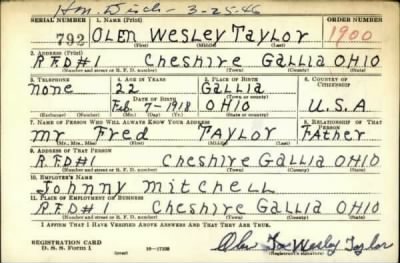 Hon. Disch - 3-25-46
SERIAL NUMBER 1. NAME (Print) ORDER NUMBER
792 OLEN WESLEY TAYLOR 1900
(First) (Middle) (Last)
2. ADDRESS (Print)
R.F.D #1 CHESHIRE GALLIA OHIO
(Number and street or R. F. D. number) (Town) (County) (State)
3. TELEPHONE 4. AGE IN YEARS 5. PLACE OF BIRTH 6. COUNTRY OF CITIZENSHIP
None 22 GALLIA
DATE OF BIRTH (Town or county)
Feb 7-1918 OHIO U.S.A
(Exchange) (Number) (Mo.) (Day) (Yr.) (State or country)
7. NAME OF PERSON WHO WILL ALWAYS KNOW YOUR ADDRESS 8. RELATIONSHIP OF THAT PERSON
Mr Fred TAYLOR FATHER
(Mr., Mrs., Miss) (First) (Middle) (Last)
9. ADDRESS OF THAT PERSON
R.F.D #1 CHESHIRE GALLIA OHIO
(Number and street or R. F. D. number) (Town) (County) (State)
10. EMPLOYER'S NAME
Johnny MITCHELL
11. PLACE OF EMPLOYMENT OR BUSINESS
R.F.D #1 CHESHIRE GALLIA OHIO
(Number and street or R. F. D. number) (Town) (County) (State)
I AFFIRM THAT I HAVE VERIFIED ABOVE ANSWERS AND THAT THEY ARE TRUE.
REGISTRATION CARD
D. S. S. Form 1 (over) 16-17105 Olen Wesley Taylor
(Registrant's signature)